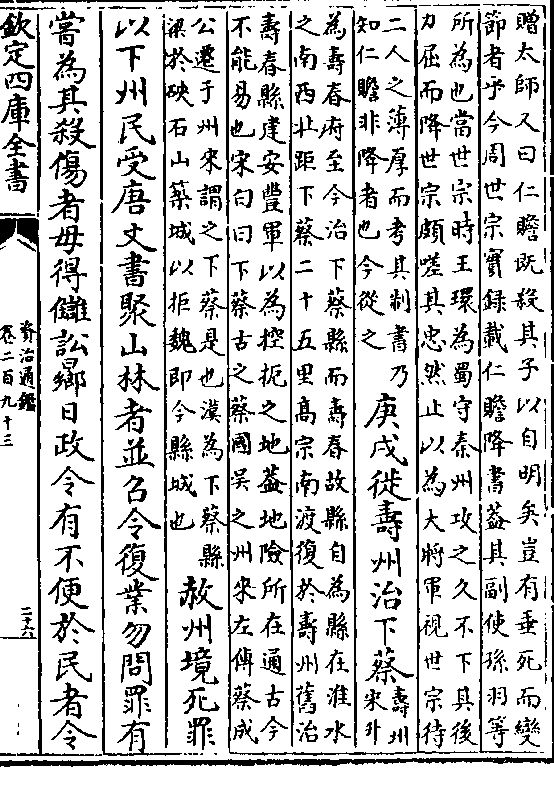 贈太師又曰仁贍既殺其子以自明矣豈有垂死而變
節者乎今周世宗實録載仁贍降書葢其副使孫羽等
所為也當世宗時王環為蜀守秦州攻之久不下其後
力屈而降世宗頗嗟其忠然止以為大將軍視世宗待
二人之薄厚而考其制書乃
知仁贍非降者也今從之
庚戌徙壽州治下蔡
壽州
宋升
為壽春府至今治下蔡縣而壽春故縣自為縣在淮水
之南西北距下蔡二十五里高宗南渡復於壽州舊治
壽春縣建安豐軍以為控扼之地葢地險所在通古今
不能易也宋白曰下蔡古之蔡國吳之州來左傳蔡成
公遷于州來謂之下蔡是也漢為下蔡縣
梁於硤石山築城以拒魏即今縣城也
赦州境死罪
以下州民受唐文書聚山林者並召令復業勿問罪有
嘗為其殺傷者毋得讎訟曏日政令有不便於民者令
欽定四庫全書
資治通鑑
卷二百九十三
二十六